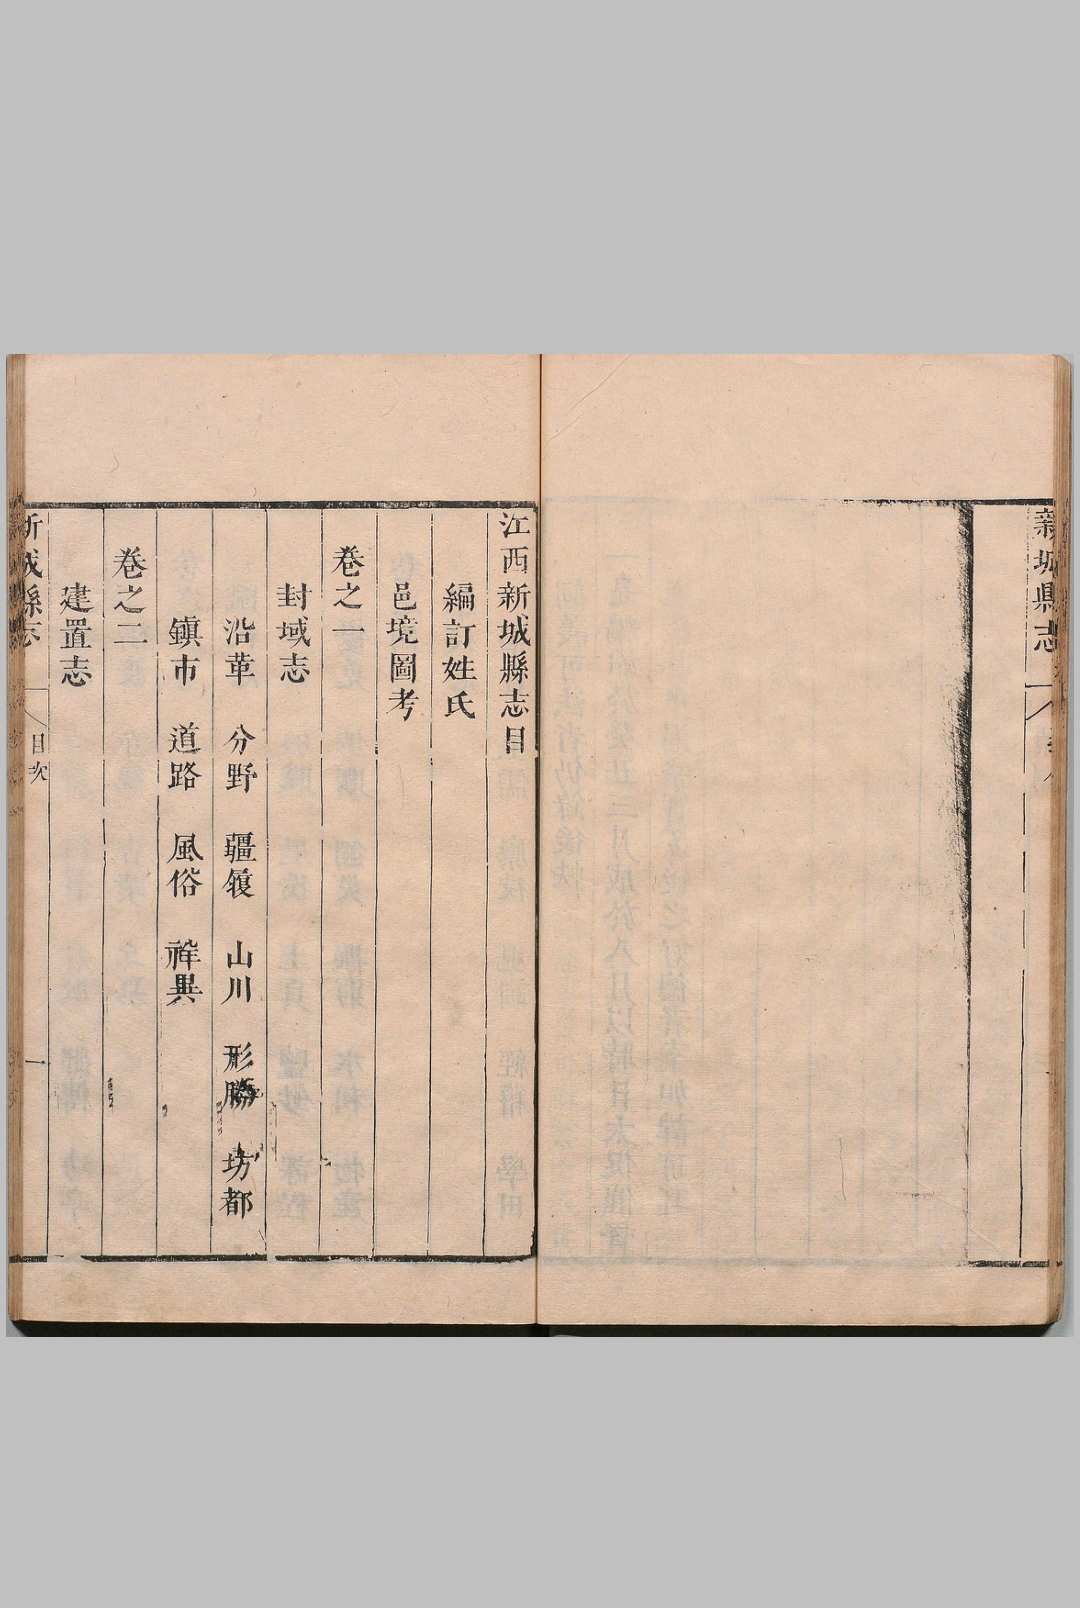 新城縣志
江西新城縣志目
編訂姓氏
邑境圖考
卷之一
封域志
沿革 分野 疆域 山川 形勝 坊都
鎮市 道路 風俗 祥異
卷之二
建置志
新城縣志 目次 一